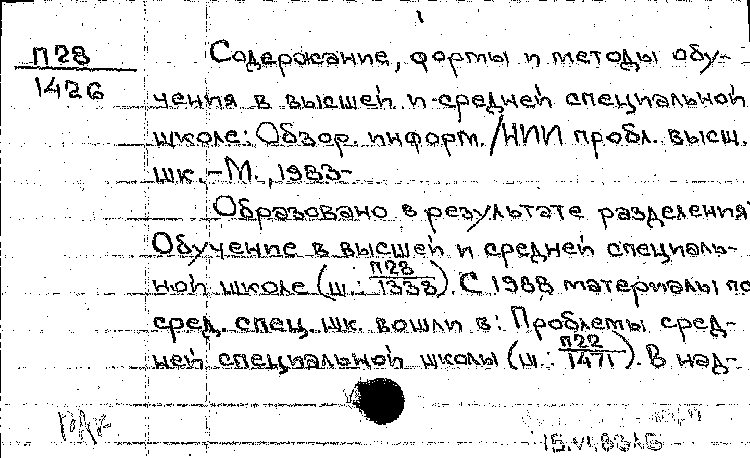 П28
1426
Содержание, формы и методы обу-
чения в высшей и средней специальной
школе: Обзор. информ./НИИ пробл. высш.
шк. – М., 1983-
Образовано в результате разделения:
Обучение в высшей и средней специаль-
ной школе (ш.: П28/1338). С 1988 материалы по
сред. спец. шк. вошли в: Проблемы сред-
ней специальной школы (ш.: П22/1471). В над-
15.VI.83